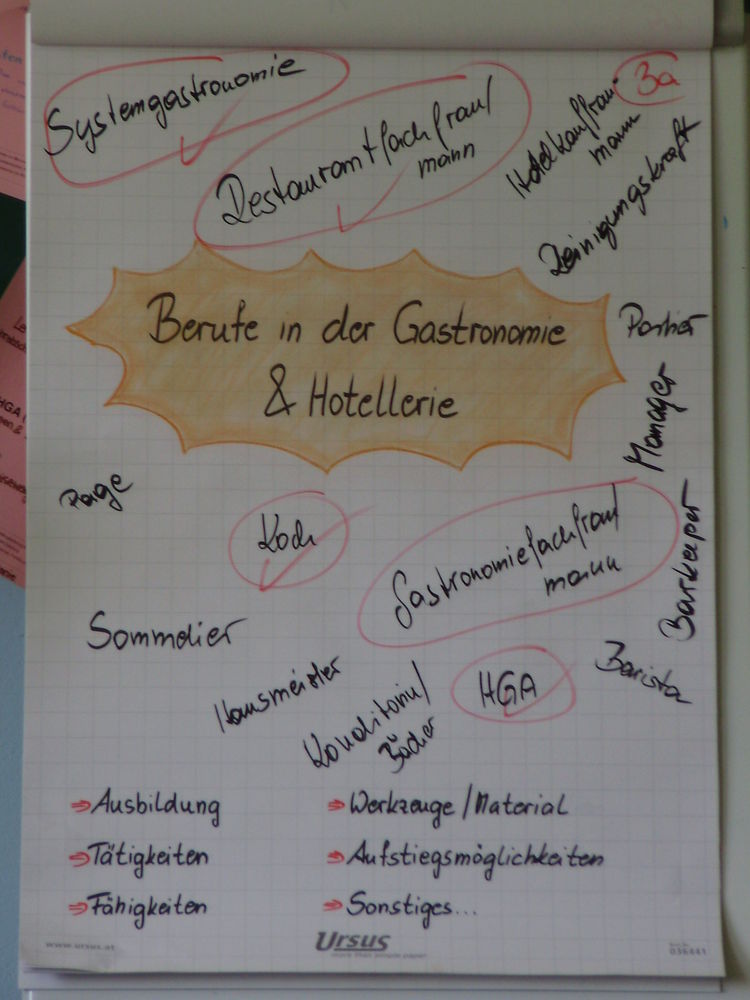 Systemgastronomie
Restaurantfachfrau/
mann
Hotelkauffrau
mann
3a
Reinigungskraft
Berufe in der Gastronomie
& Hotellerie
Portier
Manager
Page
Koch
Gastronomiefachfrau/
mann
Barkeeper
Sommelier
Hausmeister
Konditorin/
Bäcker
HGA
Barista
⇒ Ausbildung
⇒ Werkzeuge/Material
⇒ Tätigkeiten
⇒ Aufstiegsmöglichkeiten
⇒ Fähigkeiten
⇒ Sonstiges...
www.ursus.at
Ursus
more than simple paper
036441